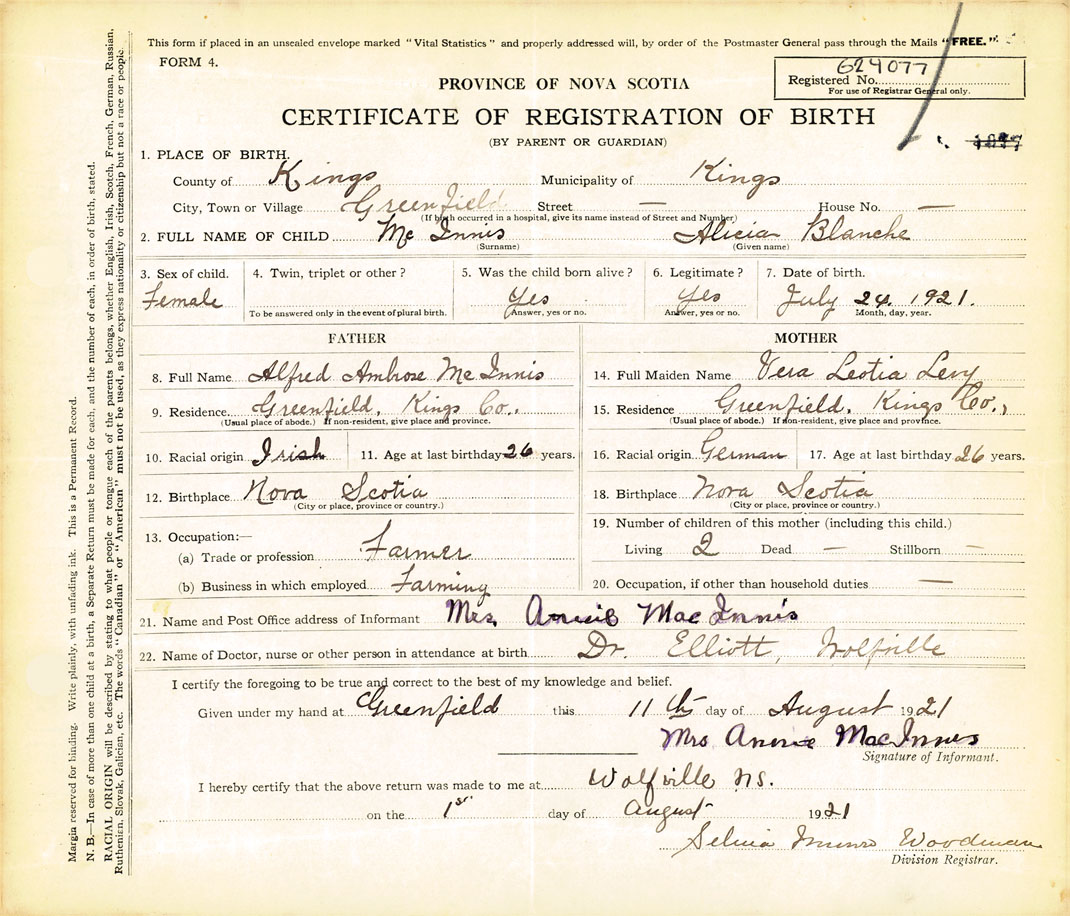 This form if placed in an unsealed envelope marked "Vital Statistics" and properly addressed will, by order of the Postmaster General pass through the Mails "FREE."
FORM 4.
624077
Registered No.
For use of Registrar General only.
PROVINCE OF NOVA SCOTIA
CERTIFICATE OF REGISTRATION OF BIRTH
(BY PARENT OR GUARDIAN)
1. PLACE OF BIRTH.
County of Kings Municipality of Kings
City, Town or Village Greenfield Street — House No. —
(If birth occurred in a hospital, give its name instead of Street and Number)
2. FULL NAME OF CHILD Mc Innis Alicia Blanche
(Surname) (Given name)
3. Sex of child. 4. Twin, triplet or other? 5. Was the child born alive? 6. Legitimate? 7. Date of birth.
Female Yes Yes July 24, 1921.
To be answered only in the event of plural birth. Answer, yes or no. Answer, yes or no. Month, day, year.
FATHER
8. Full Name Alfred Ambrose Mc Innis
9. Residence Greenfield, Kings Co.,
(Usual place of abode.) If non-resident, give place and province.
10. Racial origin Irish 11. Age at last birthday 26 years.
12. Birthplace Nova Scotia
(City or place, province or country.)
13. Occupation:—
(a) Trade or profession Farmer
(b) Business in which employed Farming
MOTHER
14. Full Maiden Name Vera Leotia Levy
15. Residence Greenfield, Kings Co.,
(Usual place of abode.) If non-resident, give place and province.
16. Racial origin German 17. Age at last birthday 26 years.
18. Birthplace Nova Scotia
(City or place, province or country.)
19. Number of children of this mother (including this child.)
Living 2 Dead — Stillborn —
20. Occupation, if other than household duties —
21. Name and Post Office address of Informant Mrs. Annie MacInnis
22. Name of Doctor, nurse or other person in attendance at birth Dr. Elliott, Wolfville
I certify the foregoing to be true and correct to the best of my knowledge and belief.
Given under my hand at Greenfield this 11th day of August 1921
Mrs Annie MacInnes
Signature of Informant.
I hereby certify that the above return was made to me at Wolfville N.S.
on the 1st day of August 1921
Selina Munro Woodman
Division Registrar.
Margin reserved for binding. Write plainly, with unfading ink. This is a Permanent Record.
N. B.—In case of more than one child at a birth, a Separate Return must be made for each, and the number of each, in order of birth, stated.
RACIAL ORIGIN will be described by stating to what people or tongue each of the parents belongs, whether English, Irish, Scotch, French, German, Russian,
Ruthenian, Slovak, Galician, etc. The words "Canadian" or "American" must not be used, as they express nationality or citizenship but not a race or people.